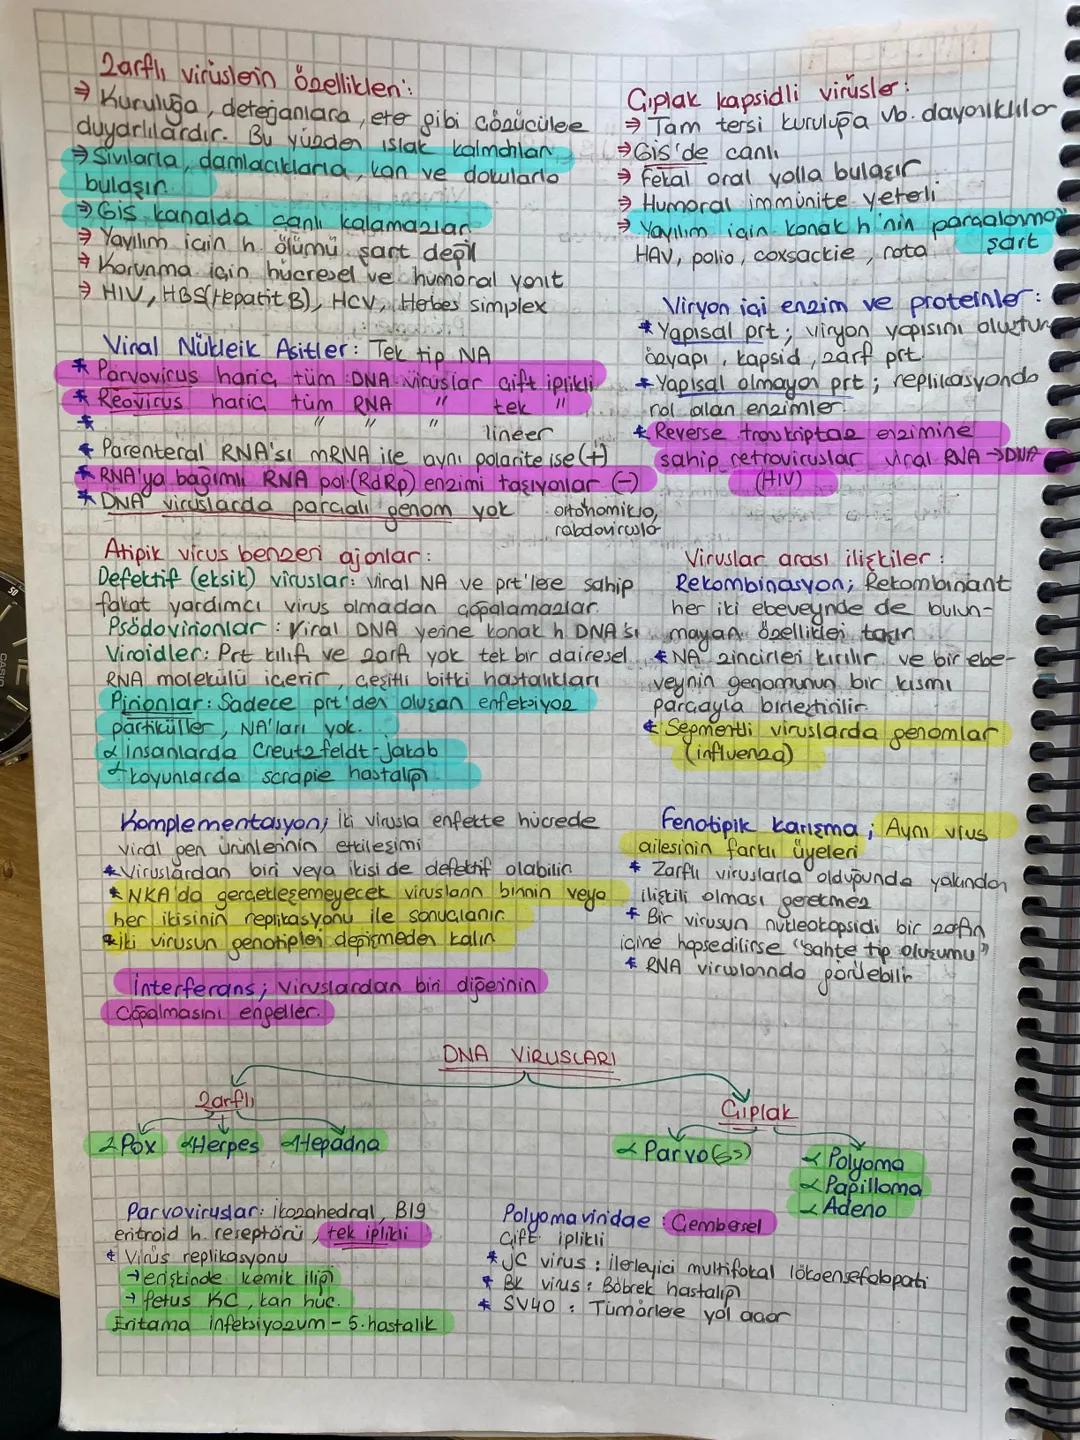 Zarflı virüslerin özellikleri:
⇒ Kuruluğa, deterjanlara, eter gibi çözücülere
duyarlılardır. Bu yüzden ıslak kalmalılar
⇒ Sıvılarla, damlacıklarla, kan ve dokularla
bulaşır.
⇒ Gis kanalda canlı kalamazlar
⇒ Yayılım için h. ölümü şart değil
⇒ Korunma için hücresel ve humoral yanıt
⇒ HIV, HBS (Hepatit B), HCV, Herbes simplex
Çıplak kapsidli virüsler:
⇒ Tam tersi kuruluğa vb. dayanıklılar
⇒ Gis'de canlı
⇒ Fekal oral yolla bulaşır
⇒ Humoral immünite yeterli
⇒ Yayılım için konak h'nin parçalanması
şart
HAV, polio, coxsackie, rota
Viral Nükleik Asitler: Tek tip NA
* Parvovirus hariç tüm DNA viruslar çift iplikli
* Reovirus hariç tüm RNA " tek "
* " " " lineer
* Parenteral RNA'sı mRNA ile aynı polarite ise (+)
* RNA'ya bağımlı RNA pol (RdRp) enzimi taşıyanlar (-)
* DNA viruslarda parçalı genom yok
ortohomikso,
rabdoviruslar
Viryon içi enzim ve proteinler:
* Yapısal prt; viryon yapısını oluştur
özyapı, kapsid, zarf prt.
* Yapısal olmayan prt; replikasyonda
rol alan enzimler
* Reverse transkriptaz enzimine
sahip retroviruslar viral RNA → DNA
(HIV)
Atipik virus benzeri ajanlar:
Defektif (eksik) viruslar: Viral NA ve prt'lere sahip
fakat yardımcı virus olmadan çoğalamazlar
Psödovirionlar: Viral DNA yerine konak h DNA'sı
Viroidler: Prt kılıfı ve zarfı yok tek bir dairesel
RNA molekülü içerir, çeşitli bitki hastalıkları
Pirionlar: Sadece prt'den oluşan enfeksiyöz
partiküller, NA'ları yok.
α insanlarda Creutzfeldt-Jakob
α koyunlarda scrapie hastalığı
Viruslar arası ilişkiler:
Rekombinasyon; Rekombinant
her iki ebeveynde de bulun-
mayan özellikler taşır
* NA zincirleri kırılır ve bir ebe-
veynin genomunun bir kısmı
parçayla birleştirilir
* Segmentli viruslarda genomlar
(influenza)
Komplementasyon; iki virusla enfekte hücrede
viral gen ürünlerinin etkileşimi
* Viruslardan biri veya ikisi de defektif olabilir
* NKA'da gerçekleşemeyecek virusların birinin veya
her ikisinin replikasyonu ile sonuçlanır.
* iki virusun genotipleri değişmeden kalır
interferans; viruslardan biri diğerinin
çoğalmasını engeller.
Fenotipik karışma; Aynı virus
ailesinin farklı üyeleri
* Zarflı viruslarla olduğunda yakından
ilişkili olması gerekmez
* Bir virusun nükleokapsidi bir zarfın
içine hapsedilirse "sahte tip oluşumu"
* RNA viruslarında görülebilir
DNA VİRUSLARI
Zarflı
α Pox α Herpes α Hepadna
Çıplak
α Parvo (ss)
α Polyoma
α Papilloma
α Adeno
Parvoviruslar: ikozahedral, B19
eritroid h. reseptörü, tek iplikli
* Virüs replikasyonu
→ erişkinde kemik iliği
→ fetus KC, kan hüc.
Eritama infeksiyozum - 5. hastalık
Polyomaviridae: Çembersel
Çift iplikli
* JC virus: ilerleyici multifokal lökoensefalopati
* BK virus: Böbrek hastalığı
* SV40: Tümörlere yol açar
CASIO
50